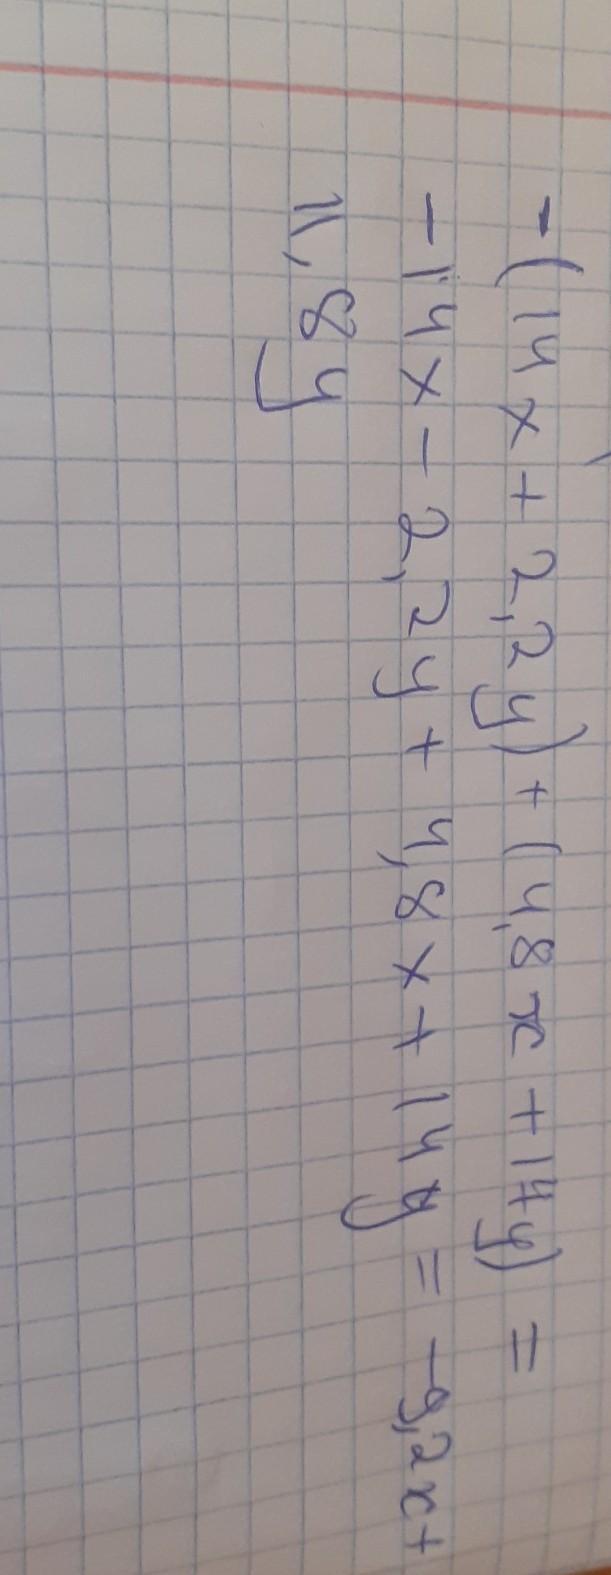 -(14x + 2,2y) + (4,8x + 14y) =
-14x - 2,2y + 4,8x + 14y = -9,2x +
11,8y